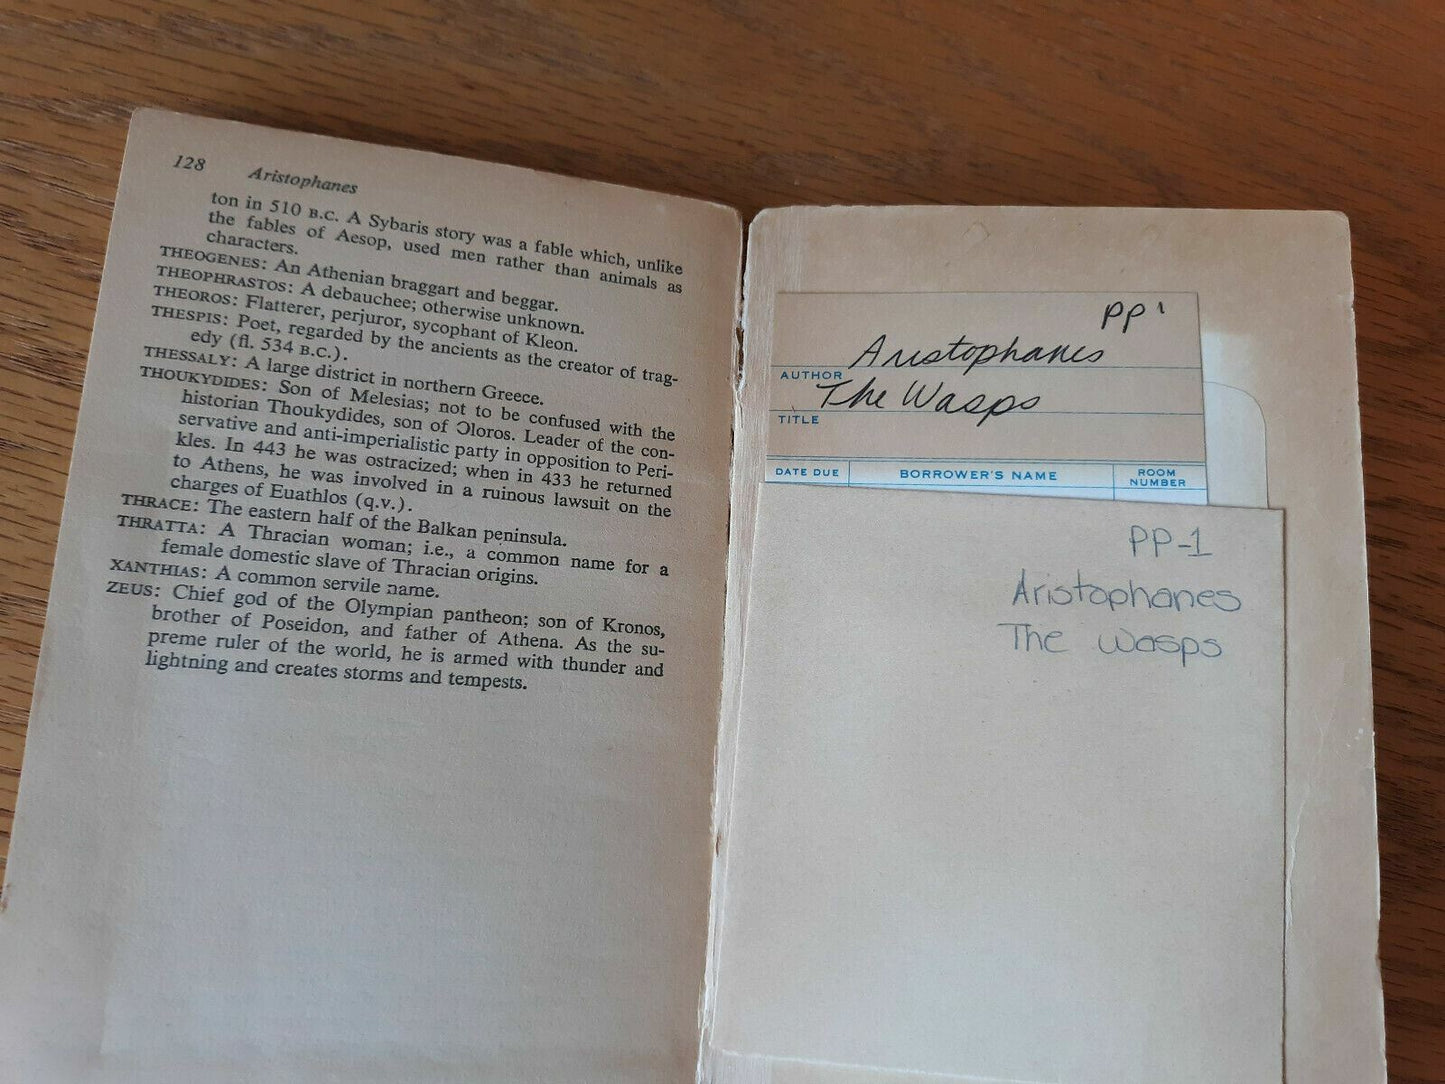 128 Aristophanes
ton in 510 B.C. A Sybaris story was a fable which, unlike
the fables of Aesop, used men rather than animals as
characters.
THEOGENES: An Athenian braggart and beggar.
THEOPHRASTOS: A debauchee; otherwise unknown.
THEOROS: Flatterer, perjuror, sycophant of Kleon.
THESPIS: Poet, regarded by the ancients as the creator of trag-
edy (fl. 534 B.C.).
THESSALY: A large district in northern Greece.
THOUKYDIDES: Son of Melesias; not to be confused with the
historian Thoukydides, son of Ɔloros. Leader of the con-
servative and anti-imperialistic party in opposition to Peri-
kles. In 443 he was ostracized; when in 433 he returned
to Athens, he was involved in a ruinous lawsuit on the
charges of Euathlos (q.v.).
THRACE: The eastern half of the Balkan peninsula.
THRATTA: A Thracian woman; i.e., a common name for a
female domestic slave of Thracian origins.
XANTHIAS: A common servile name.
ZEUS: Chief god of the Olympian pantheon; son of Kronos,
brother of Poseidon, and father of Athena. As the su-
preme ruler of the world, he is armed with thunder and
lightning and creates storms and tempests.
PP 1
Aristophanes
AUTHOR
The Wasps
TITLE
DATE DUE BORROWER'S NAME ROOM NUMBER
PP-1
Aristophanes
The Wasps